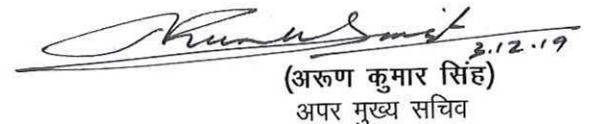 3.12.19
(अरूण कुमार सिंह)
अपर मुख्य सचिव